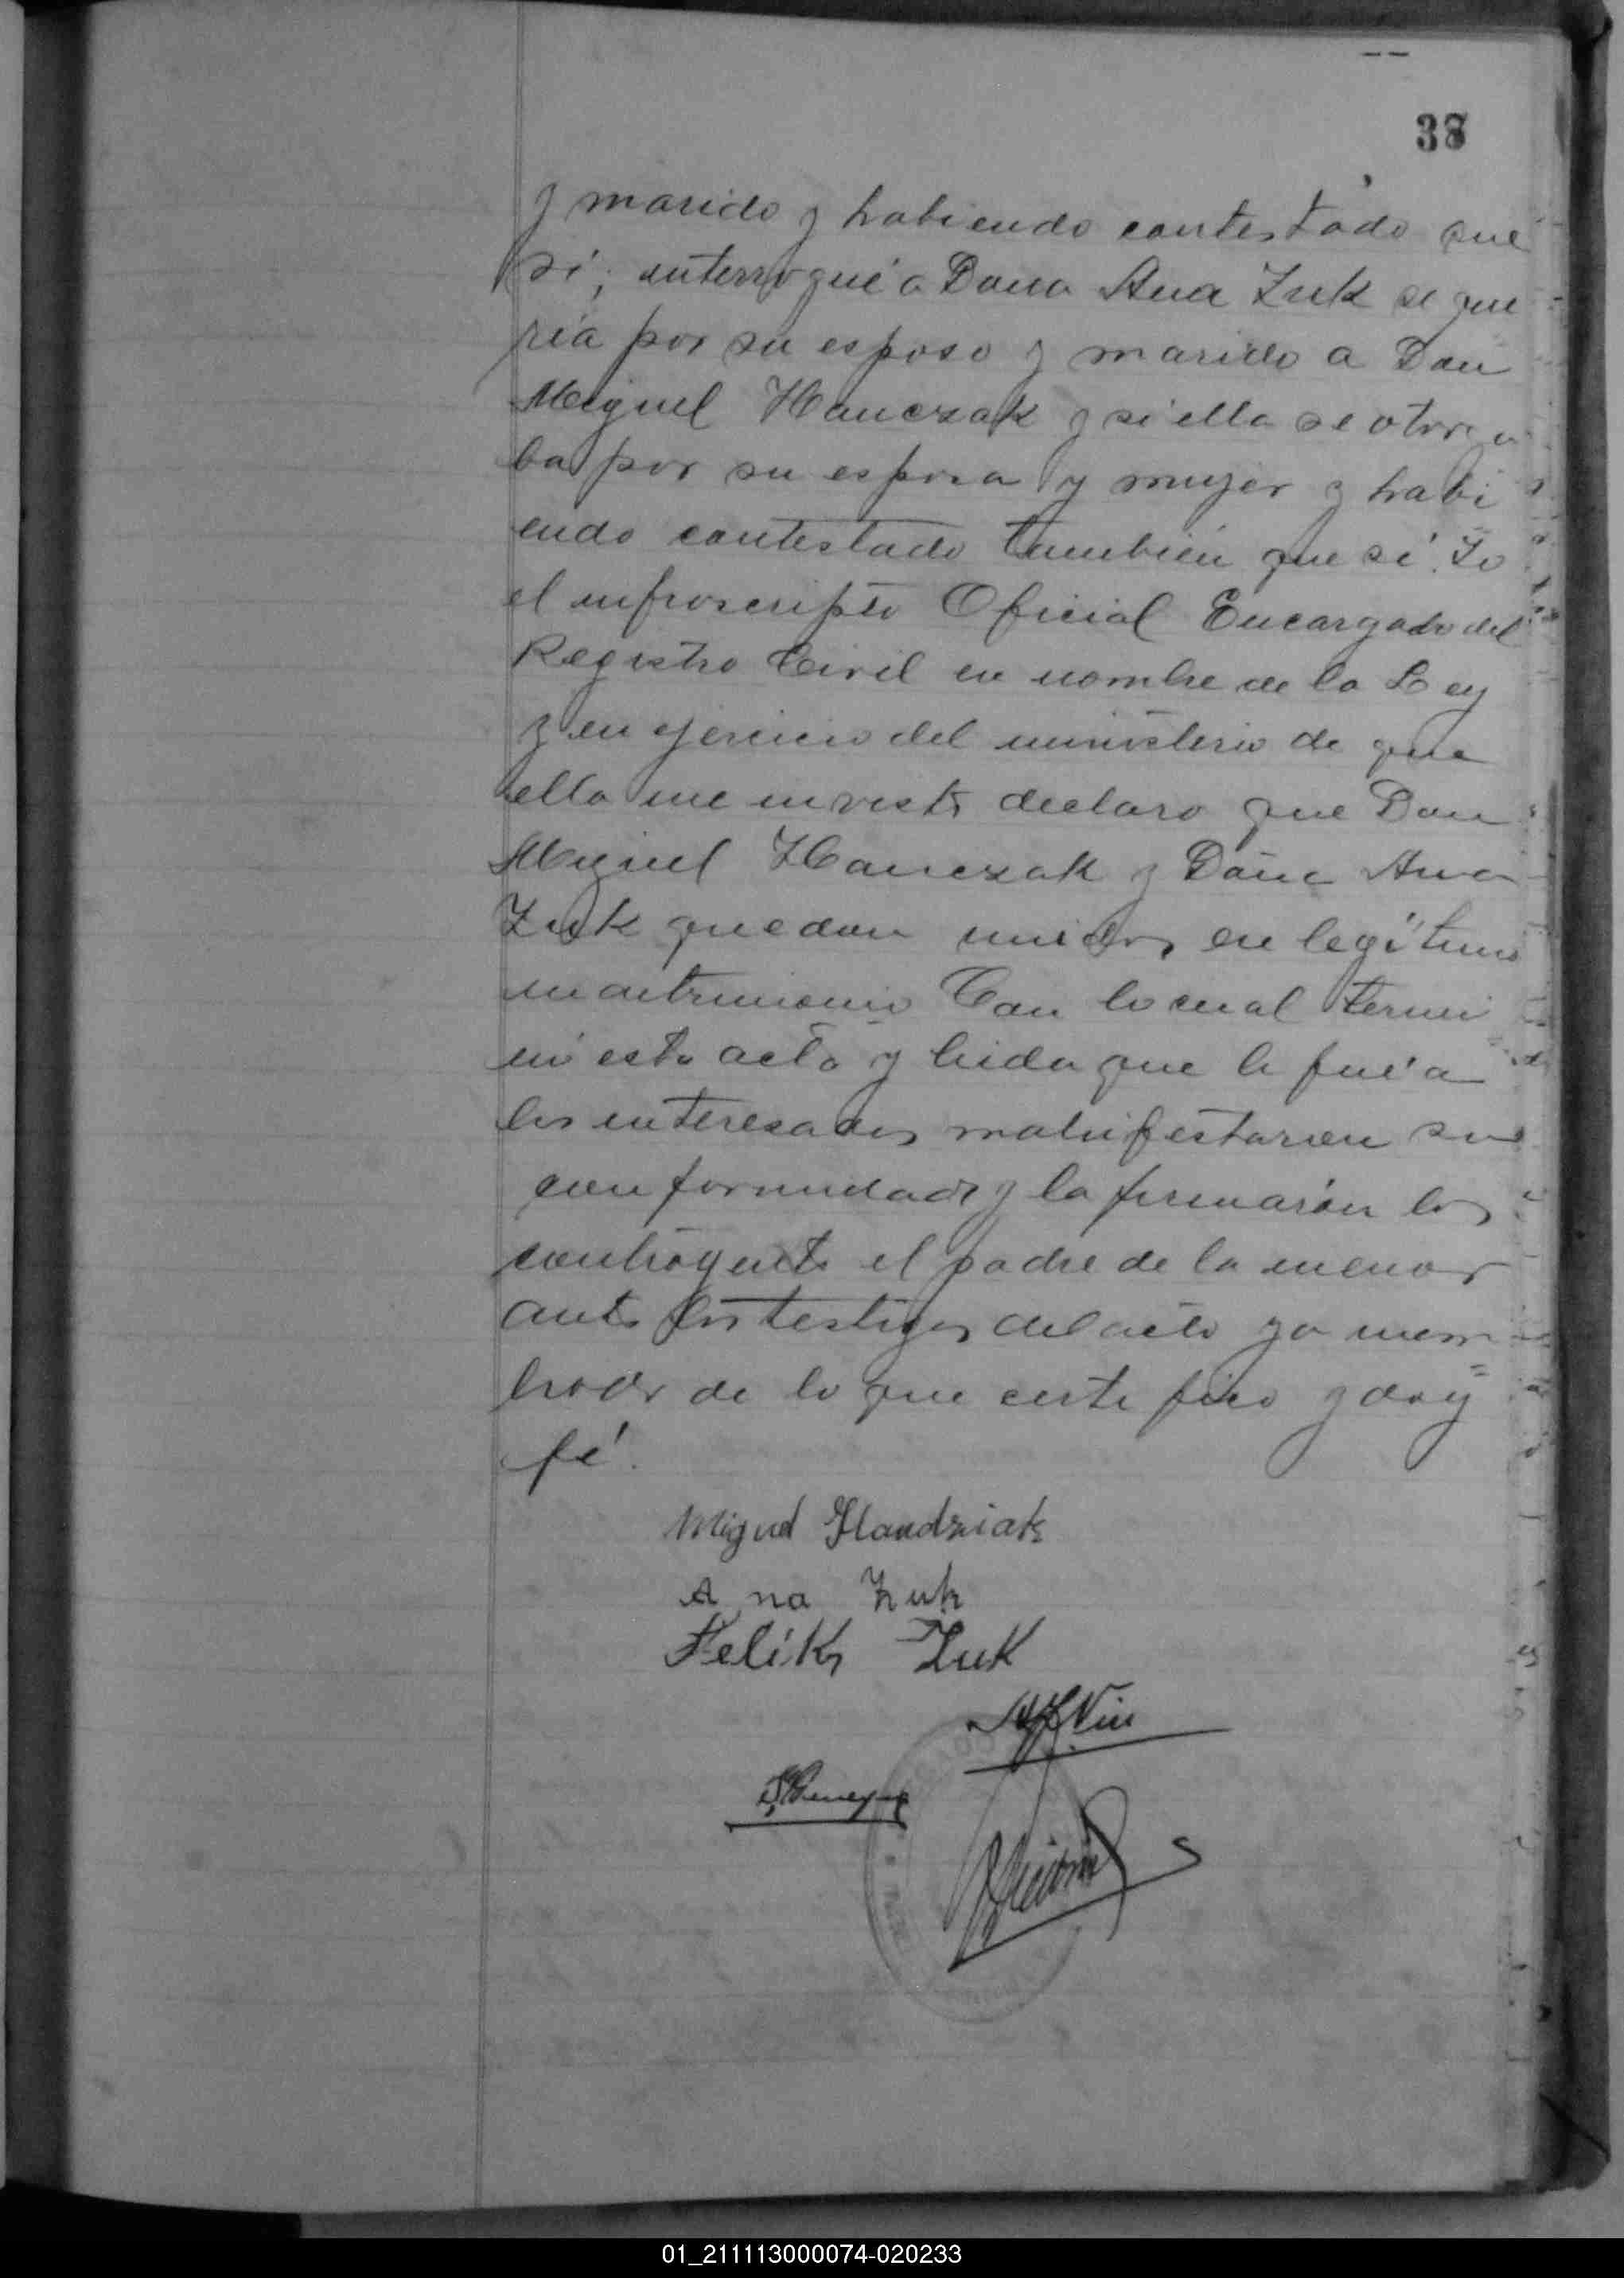 38
y marido y habiendo contestado que
si, interrogué a Doña Ana Zuk si que
ría por su esposo y marido a Don
Miguel Hanczak y si ella se otorga
ba por su esposa y mujer y habi
endo contestado también que sí. Yo
el infrascripto Oficial Encargado del
Registro Civil en nombre de la Ley
y en ejercicio del ministerio de que
ella me inviste declaro que Don
Miguel Hanczak y Doña Ana
Zuk quedan unidos en legítimo
matrimonio Con lo cual termi
nó esta acta y leida que le fué a
los interesados manifestaron su
conformidad y la firmarón los
contrayente el padre de la menor
ante los testigos del acto ya nom
brados de lo que certifico y doy
fé.
Miguel Handziak
Ana Zuk
Feliks Zuk
01_211113000074-020233